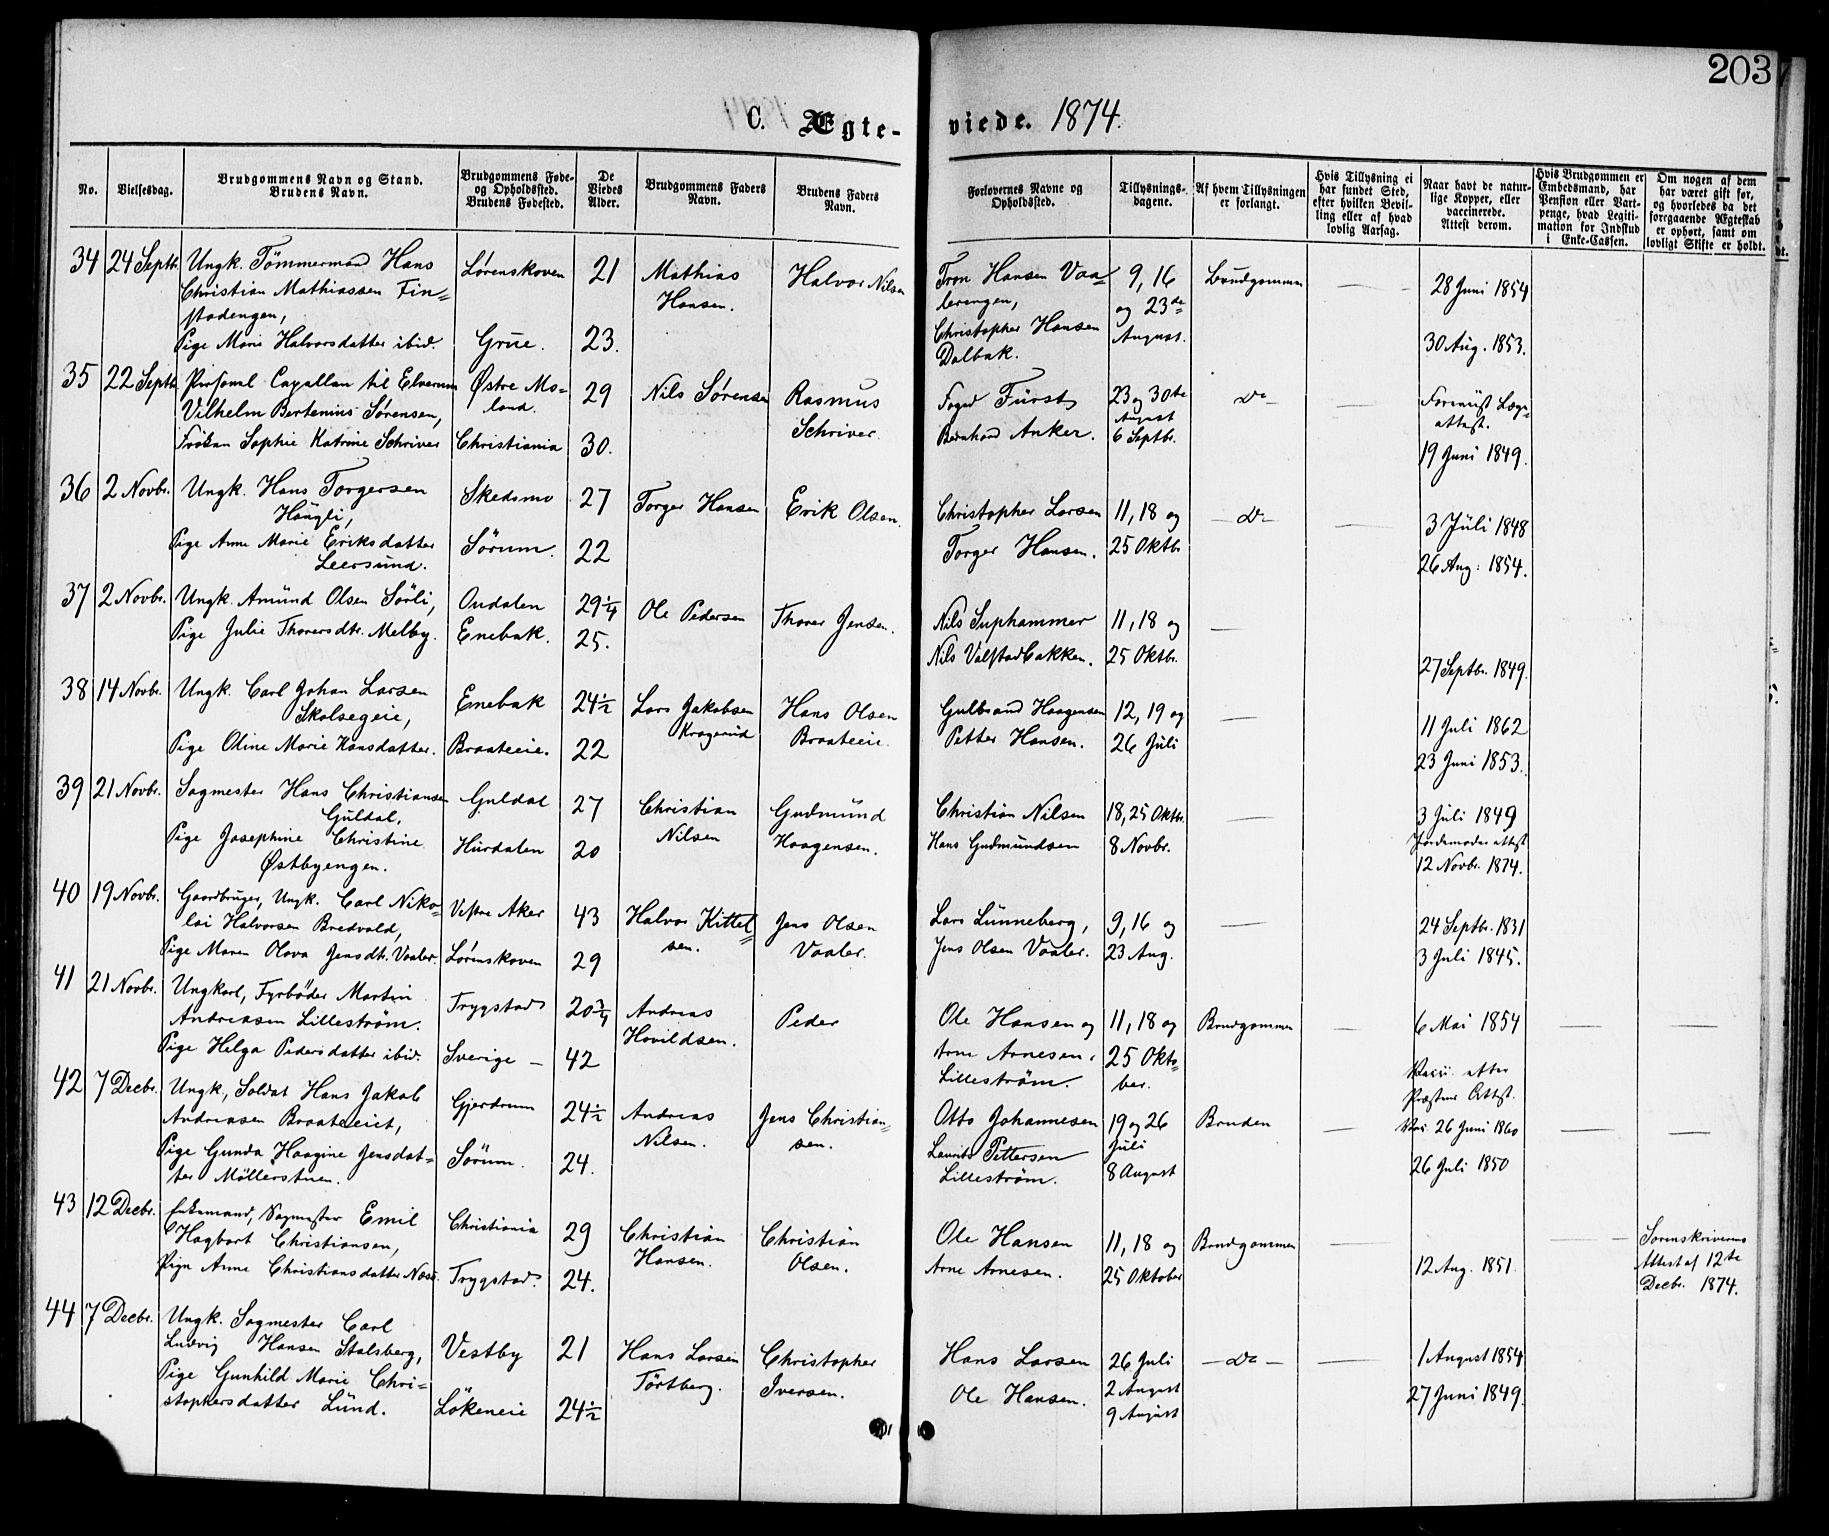 203
C. Ægte-
viede. 1874.
No.
Vielsesdag.
Brudgommens Navn og Stand.
Brudens Navn.
Brudgommens Føde-
og Opholdssted.
Brudens Fødested.
De
Viedes
Alder.
Brudgommens Faders
Navn.
Brudens Faders
Navn.
Forlovernes Navne og
Opholdssted.
Tillysnings-
dagene.
Af hvem Tillysningen
er forlangt.
Hvis Tillysning ei
har fundet Sted,
efter hvilken Bevil-
ling eller af hvad
lovlig Aarsag.
Naar havt de natur-
lige Kopper, eller
vaccinerede.
Attest derom.
Hvis Brudgommen er
Embedsmand, har
Pension eller Vart-
penge, hvad Legiti-
mation for Indskud
i Enke-Cassen.
Om nogen af dem
har været gift før,
og hvorledes da det
foregaaende Ægteskab
er ophørt, samt om
lovligt Skifte er holdt.
34 24 Septb. Ungk. Tömmermand Hans Lørenskoven 21 Mathias Halvor Nilsen Tron Hansen Vaa= 9, 16 Brudgommen 28 Juni 1854
Christian Mathiassen Fin= Hansen. lerengen, og 23de
stadengen, Christopher Hansen August.
Pige Marie Halvorsdatter ibid. Grue. 23. Dalbak. 30 Aug. 1853.
35 22 Septb. Personel Capellan til Elverum Østre Mo= 29 Nils Sørensen Rasmus Foged Fürst 23 og 30te Do Forevist Læge=
Vilhelm Bertenius Sørensen, land. Schriver. August attest.
Frøken Sophie Katrine Schriver Christiania 30. Bernhard Anker. 6 Septbr. 19 Juni 1849.
36 2 Novbr. Ungk. Hans Torgersen Skedsmo 27 Torger Hansen Erik Olsen. Christopher Larsen 11, 18 og Do 3 Juli 1848
Haugli,
Pige Anne Marie Eriksdatter Sørum. 22 Torger Hansen. 25 Oktb. 26 Aug: 1854.
Leersund.
37 2 Novbr. Ungk. Amund Olsen Sörli, Oudalen 29¼ Ole Pedersen Thorer Jensen. Nils Suphammer 11, 18 og
Pige Julie Thorersdtr. Melby. Enebak. 25. Nils Valstadbakken. 25 Oktbr. 27 Septbr. 1849.
38 14 Novbr. Ungk. Carl Johan Larsen Enebak 24½ Lars Jakobsen Hans Olsen Gulbrand Haagensen 12, 19 og 11 Juli 1862
Skolsegeie, Kragerud Braateeie.
Pige Oline Marie Hansdatter. Braateeie. 22 Petter Hansen. 26 Juli 23 Juni 1853.
39 21 Novbr. Sagmester Hans Christiansen Guldal 27 Christian Gudmund Christian Nilsen 18, 25 Oktbr. 3 Juli 1849
Guldal, Nilsen Haagensen.
Pige Josephine Christine Hurdalen 20 Hans Gudmundsen 8 Novbr. Jordemoder attest
Østbyengen. 12 Novbr. 1874.
40 19 Novbr. Gaardbruger, Ungk. Carl Niko= Vestre Aker 43 Halvor Kittel= Jens Olsen Lars Lünneberg, 9, 16 og 24 Septbr. 1831
lai Halvorsen Bredvold, sen. Vaaler.
Pige Maren Olava Jensdt. Vaaler. Lørenskoven 29 Jens Olsen Vaaler. 23 Aug. 3 Juli 1845.
41 21 Novbr. Ungkarl, Fyrböder Martin Trygstad 20¾ Andreas Peder Ole Hansen og 11, 18 og Brudgommen 6 Mai 1854
Andreasen Lilleström. Havildsen. Arne Arnesen, 25 Okto=
Pige Helga Pedersdatter ibid. Sverige 42 Lilleström. ber. Vacc. efter
Præstens Attest.
42 7 Decbr. Ungk, Soldat Hans Jakob Gjerdrum 24½ Andreas Jens Christian= Otto Johannesen 19 og 26 Bruden Vac. 26 Juni 1860
Andreasen Braateeiet, Nilsen. sen. Juli
Pige Gunda Haagine Jensdat= Sörum. 24. Laurits Pettersen 8 August 26 Juli 1850
ter Möllerstuen. Lilleström.
43 12 Decbr. Enkemand, Sagmester Emil Christiania 29 Christian Christian Ole Hansen 11, 18 og Brudgommen Sorenskriverens
Hagbart Christiansen, Hansen. Olsen. Attest af 12te
Pige Anne Christiansdatter Næss. Trygstad. 24. Arne Arnesen. 25 Oktober 12 Aug. 1851. Decbr. 1874.
44 7 Decbr. Ungk. Sagmester Carl
Ludvig Hansen Stalsberg, Vestby 21 Hans Larsen Christopher Hans Larsen 26 Juli Do 1 August 1854
Pige Gunhild Marie Chri= Törtberg. Iversen. 2 August
stophersdatter Lund. Lökeneie 24½ Ole Hansen. 9 August 27 Juni 1849.